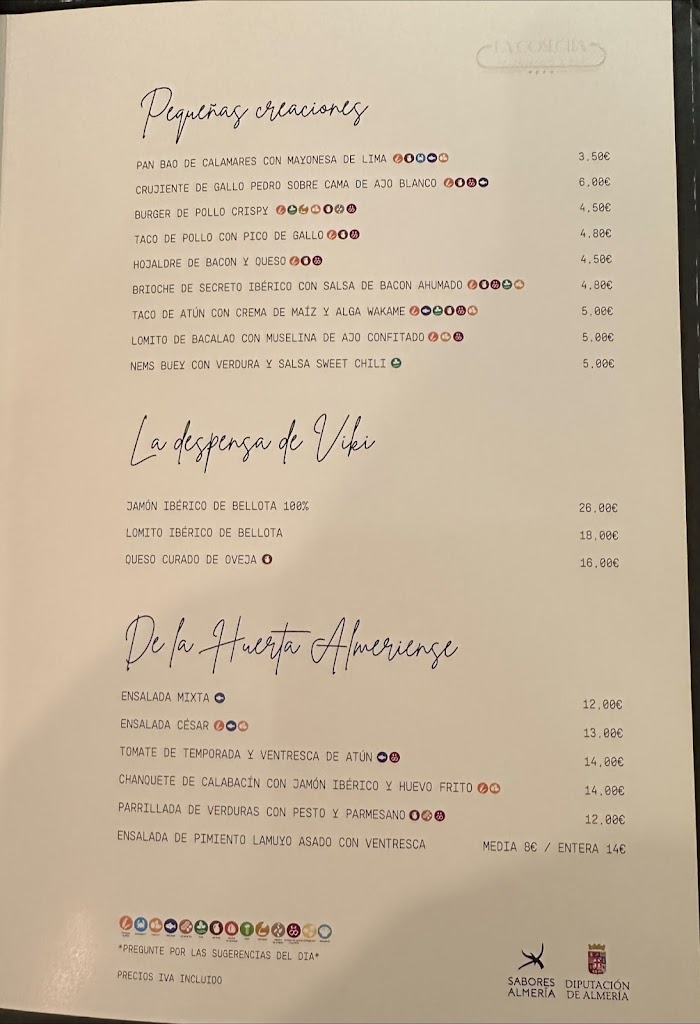 LA CONCHA
Pequeñas creaciones
PAN BAO DE CALAMARES CON MAYONESA DE LIMA 3,50€
CRUJIENTE DE GALLO PEDRO SOBRE CAMA DE AJO BLANCO 6,00€
BURGER DE POLLO CRISPY 4,50€
TACO DE POLLO CON PICO DE GALLO 4,80€
HOJALDRE DE BACON Y QUESO 4,50€
BRIOCHE DE SECRETO IBÉRICO CON SALSA DE BACON AHUMADO 4,80€
TACO DE ATÚN CON CREMA DE MAÍZ Y ALGA WAKAME 5,00€
LOMITO DE BACALAO CON MUSELINA DE AJO CONFITADO 5,00€
NEMS BUEY CON VERDURA Y SALSA SWEET CHILI 5,00€
La despensa de Viki
JAMÓN IBÉRICO DE BELLOTA 100% 26,00€
LOMITO IBÉRICO DE BELLOTA 18,00€
QUESO CURADO DE OVEJA 16,00€
De la Huerta Almeriense
ENSALADA MIXTA 12,00€
ENSALADA CÉSAR 13,00€
TOMATE DE TEMPORADA Y VENTRESCA DE ATÚN 14,00€
CHANQUETE DE CALABACÍN CON JAMÓN IBÉRICO Y HUEVO FRITO 14,00€
PARRILLADA DE VERDURAS CON PESTO Y PARMESANO 12,00€
ENSALADA DE PIMIENTO LAMUYO ASADO CON VENTRESCA MEDIA 8€ / ENTERA 14€
*PREGUNTE POR LAS SUGERENCIAS DEL DIA*
PRECIOS IVA INCLUIDO
SABORES ALMERÍA
DIPUTACIÓN DE ALMERÍA